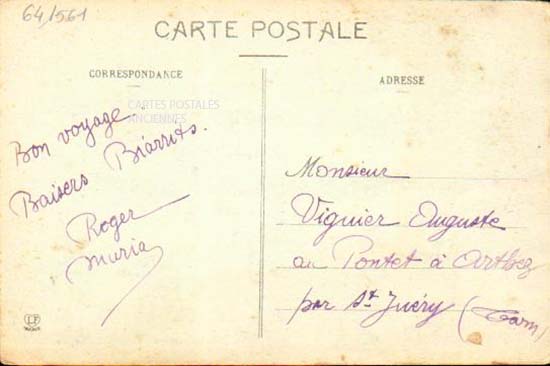 64/561
CARTE POSTALE
CORRESPONDANCE
CARTES POSTALES
ANCIENNES
Bon voyage
Baisers Biarrits.
Roger
Maria
ADRESSE
Monsieur
Viguier Auguste
au Pontet à Arthez
par St Juéry (Tarn)